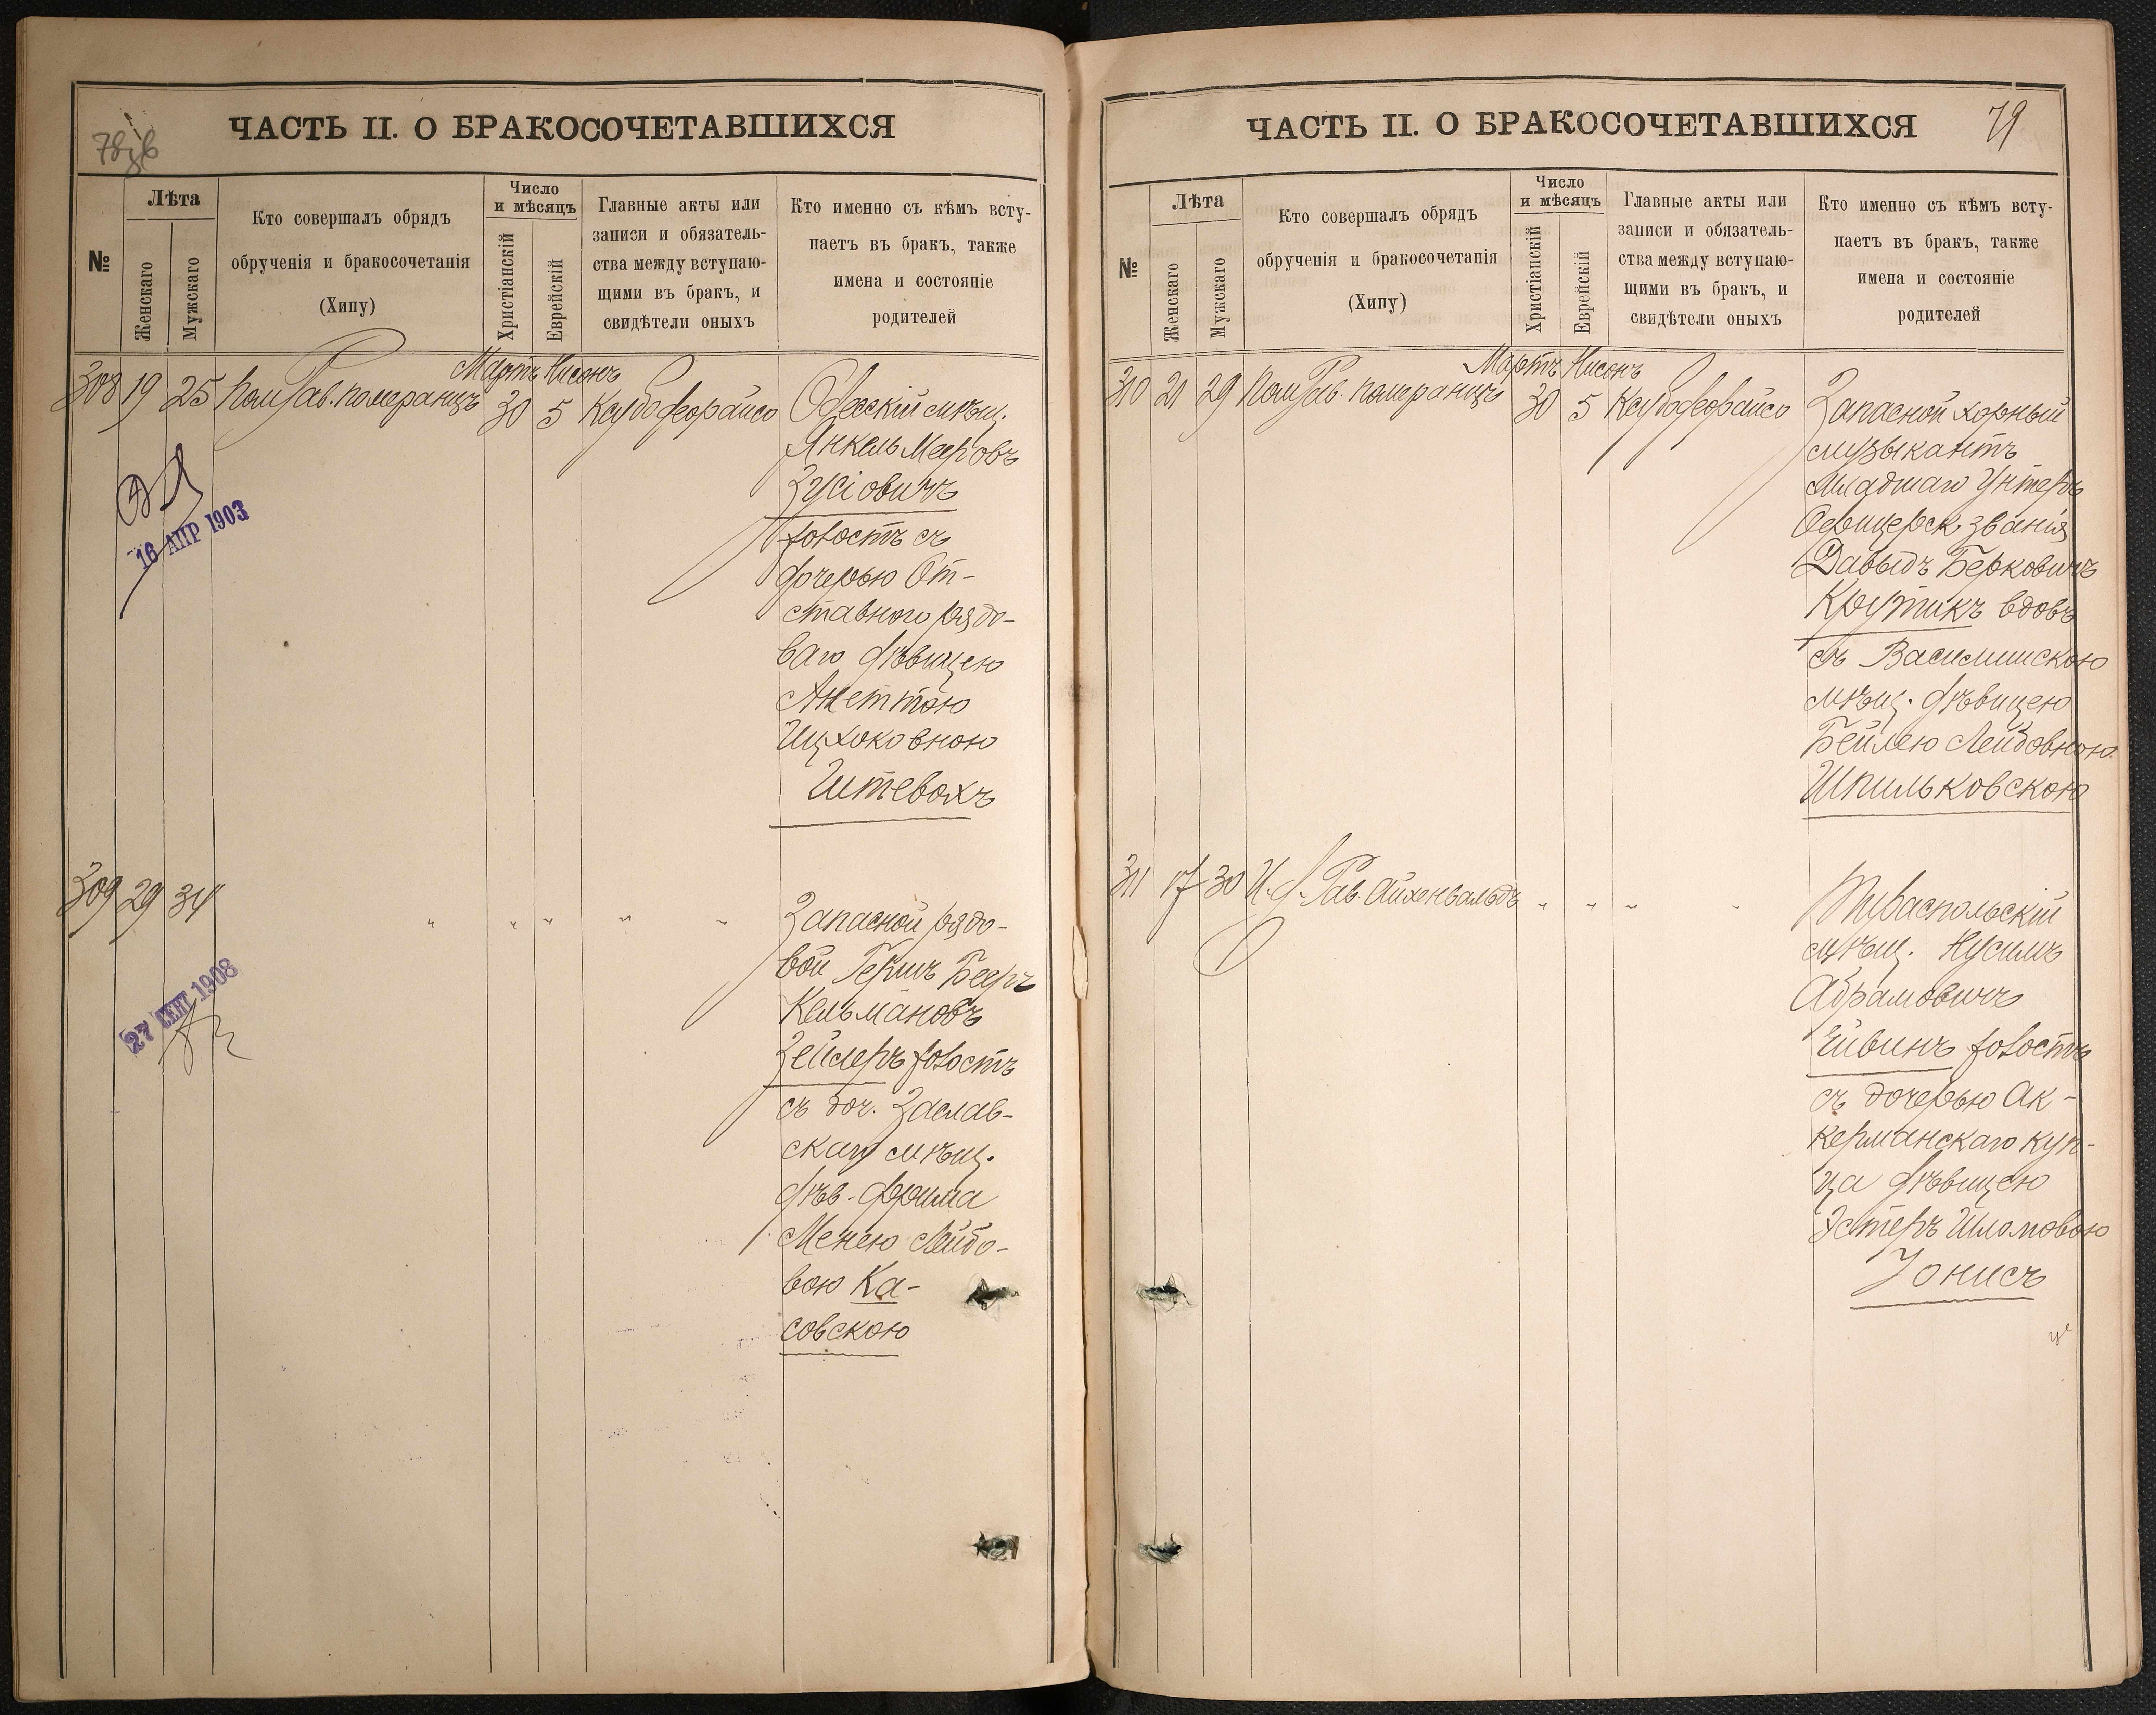 78
ЧАСТЬ II. О БРАКОСОЧЕТАВШИХСЯ
№
Лѣта
Женскаго
Мужскаго
Кто совершалъ обрядъ
обрученія и бракосочетанія
(Хипу)
Число
и мѣсяцъ
Христіанскій
Еврейскій
Главные акты или
записи и обязатель-
ства между вступаю-
щими въ бракъ, и
свидѣтели оныхъ
Кто именно съ кѣмъ всту-
паетъ въ бракъ, также
имена и состояніе
родителей
Мартъ Нисонъ
308 19 25 Пом Рав. Померанцъ 30 5 Ксубо деорайсо
Одесскій мѣщ.
Янкель Мееровъ
Зусіовичъ
холостъ съ
дочерью От-
ставного рядо-
ваго дѣвицею
Анеттою
Ицхоковною
Штевахъ
16 АПР 1903
309 29 34 " " " " "
Запасной рядо-
вой Гершъ Бееръ
Кельмановъ
Зейлеръ холостъ
съ доч. Заслав-
скаго мѣщ.
дѣв. Фрима
Менею Лейбо-
вою Ка-
совскою
27 СЕНТ 1908
79
ЧАСТЬ II. О БРАКОСОЧЕТАВШИХСЯ
№
Лѣта
Женскаго
Мужскаго
Кто совершалъ обрядъ
обрученія и бракосочетанія
(Хипу)
Число
и мѣсяцъ
Христіанскій
Еврейскій
Главные акты или
записи и обязатель-
ства между вступаю-
щими въ бракъ, и
свидѣтели оныхъ
Кто именно съ кѣмъ всту-
паетъ въ бракъ, также
имена и состояніе
родителей
Мартъ Нисонъ
310 21 29 Пом Рав. Померанцъ 30 5 Ксубо деорайсо
Запасной хорный
музыкантъ
младшаго Унтеръ
Офицерск. званія
Давыдъ Берковичъ
Крутикъ вдовъ
съ Василишскою
мѣщ. дѣвицею
Бейлею Лейбовною
Шпильковскою
311 17 30 И. д. Рав. Айхенвальдъ " " " "
Тираспольскій
мѣщ. Нусимъ
Абрамовичъ
Ейвинъ холостъ
съ дочерью Ак-
керманскаго куп-
ца дѣвицею
Эстеръ Шломовою
Іонисъ